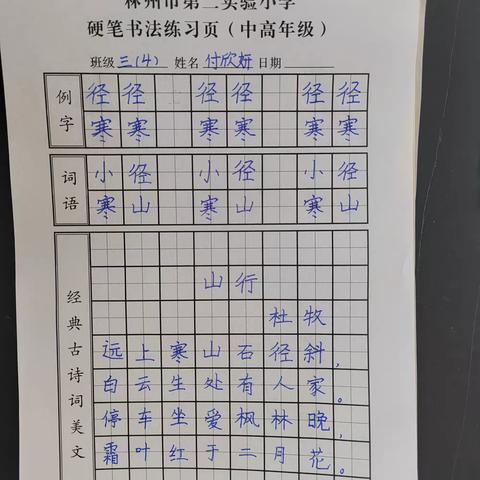 林州市第二实验小学
硬笔书法练习页（中高年级）
班级 三(4) 姓名 付欣妍 日期
例字
径 径 径 径 径 径
寒 寒 寒 寒 寒 寒
词语
小 径 小 径 小 径
寒 山 寒 山 寒 山
经典古诗词美文
山行
杜牧
远上寒山石径斜，
白云生处有人家。
停车坐爱枫林晚，
霜叶红于二月花。